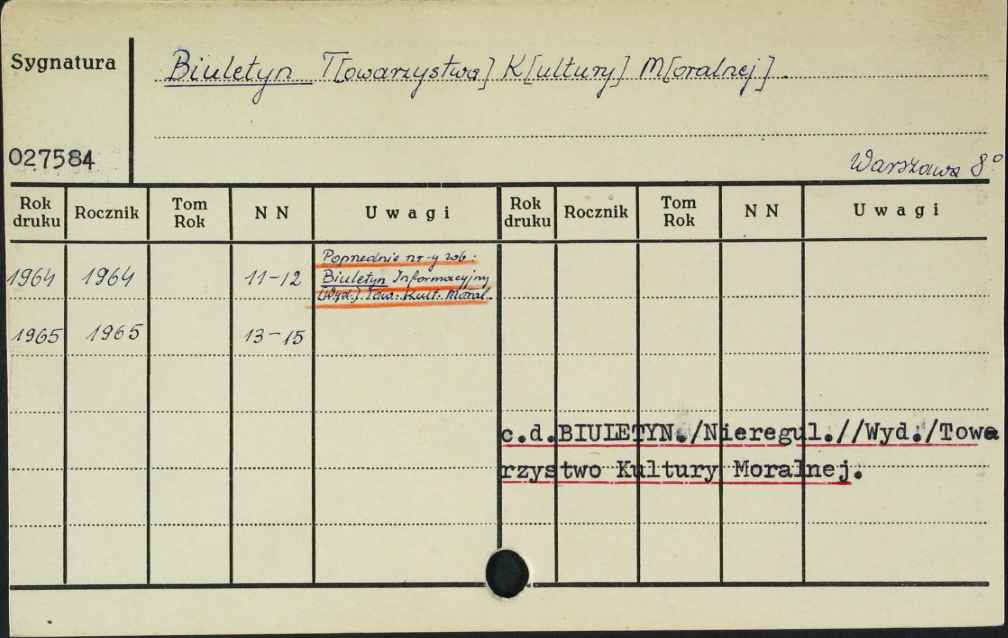 Sygnatura
Biuletyn T[owarzystwa] K[ultury] M[oralnej].
027584
Warszawa 8°
Rok druku Rocznik Tom Rok N N Uwagi Rok druku Rocznik Tom Rok N N Uwagi
Poprzednie nr-y zob.
1964 1964 11-12 Biuletyn Informacyjny
[Wyd.] Tow. Kult. Moral.
1965 1965 13-15
c.d.BIULETYN./Nieregul.//Wyd./Towa
rzystwo Kultury Moralnej.